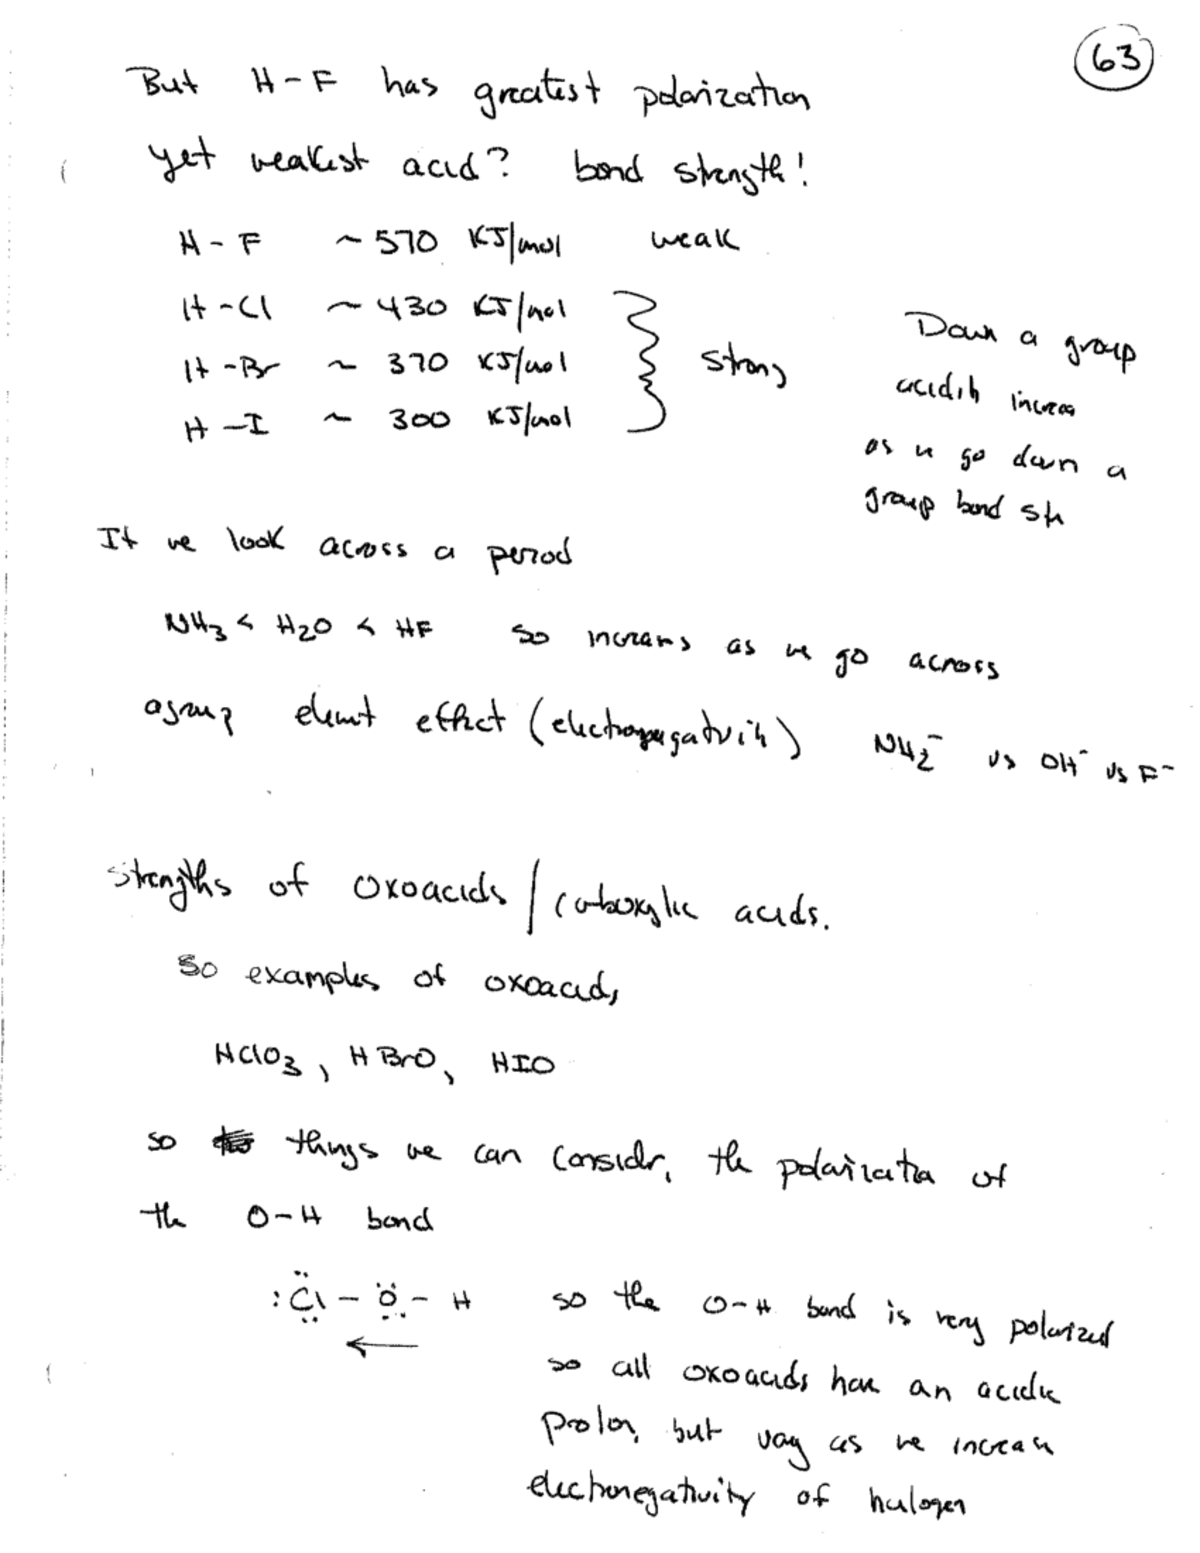 63
But H-F has greatest polarization
yet weakest acid? bond strength!
H-F ~570 KJ/mol weak
H-Cl ~430 KJ/mol
H-Br ~ 370 KJ/mol
H-I ~ 300 KJ/mol
strong
Down a group
acidity increas
as we go down a
group bond str
If we look across a period
NH₃ < H₂O < HF so increases as we go across
a group element effect (electronegativity) NH₂⁻ vs OH⁻ vs F⁻
strengths of oxoacids / carboxylic acids.
So examples of oxoacids
HClO₃, HBrO, HIO
so things we can consider, the polarization of
the O-H bond
:Cl - O - H so the O-H bond is very polarized
←
so all oxoacids have an acidic
proton, but vary as we increase
electronegativity of halogen